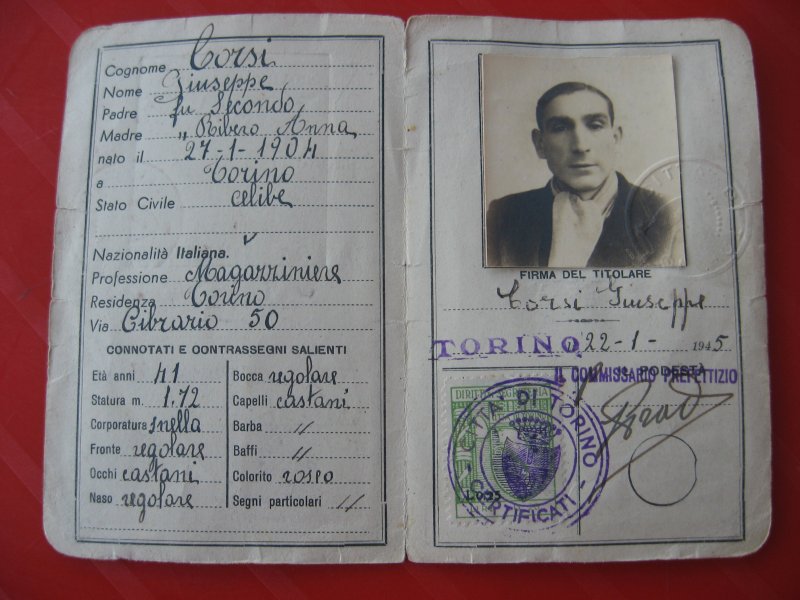 Cognome Corsi
Nome Giuseppe
Padre fu Secondo
Madre " Ribero Anna
nato il 27-1-1904
a Torino
Stato Civile celibe
Nazionalità Italiana.
Professione Magazziniere
Residenza Torino
Via Cibrario 50
CONNOTATI E CONTRASSEGNI SALIENTI
Età anni 41
Statura m. 1.72
Corporatura snella
Fronte regolare
Occhi castani
Naso regolare
Bocca regolare
Capelli castani
Barba "
Baffi "
Colorito roseo
Segni particolari "
FIRMA DEL TITOLARE
Corsi Giuseppe
TORINO, 22-1-1945
IL PODESTÀ
IL COMMISSARIO PREFETTIZIO
CITTÀ DI TORINO
CERTIFICATI